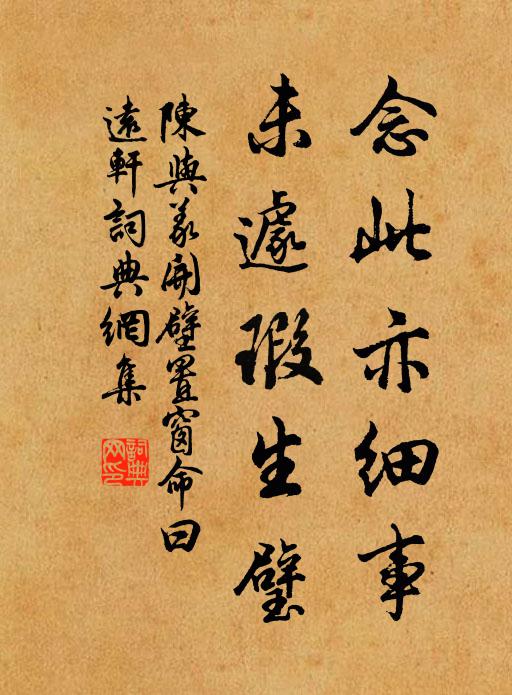 念此亦细事
未遽瑕生璧
陳與義開壁置窗命曰
遠軒詞典網集
詞典网印